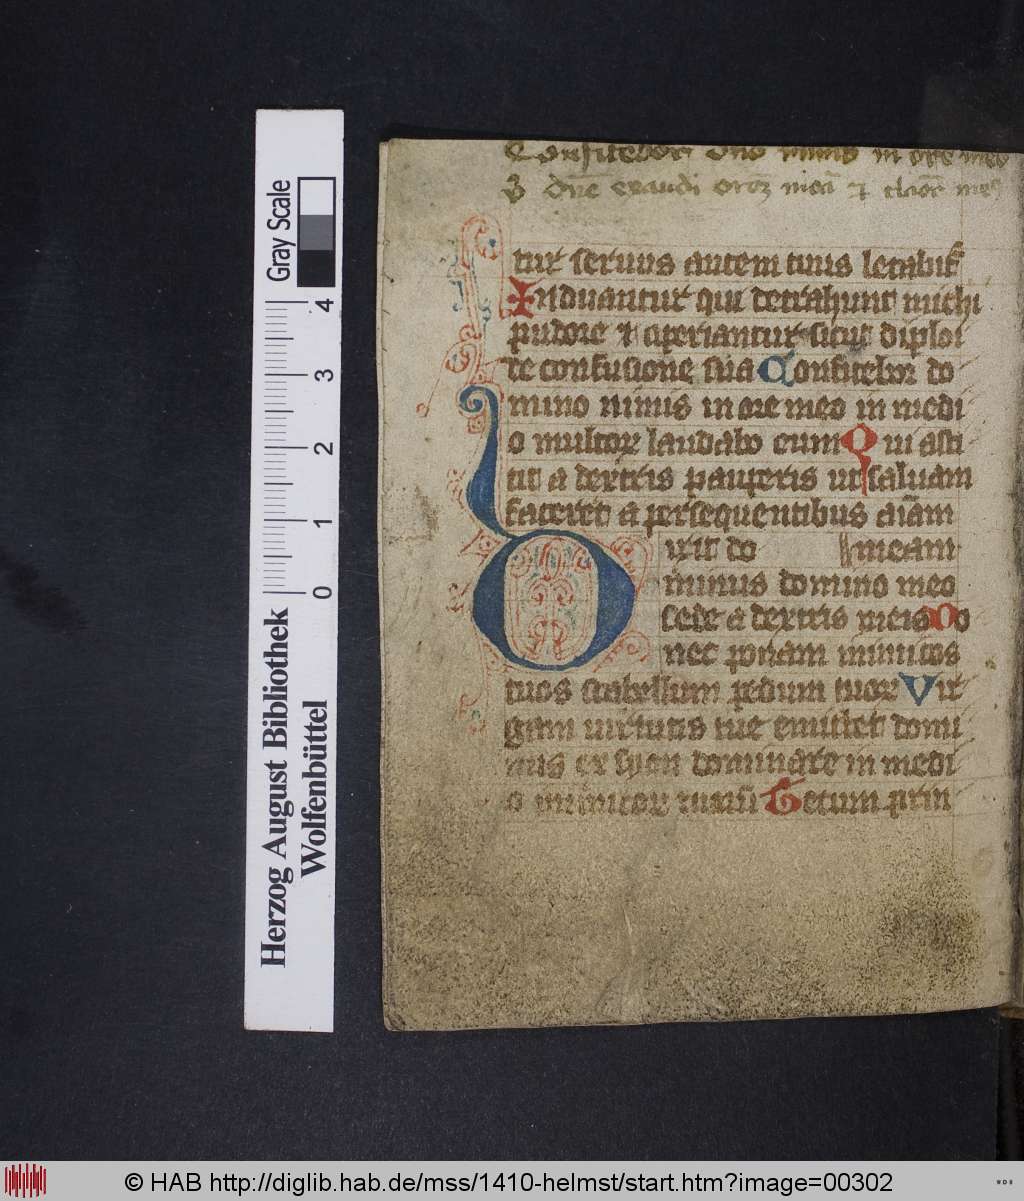 Confitebor dno nimis in ore meo
V Dne exaudi oroꝫ meā ⁊ clāor meꝰ
tur seruus autem tuus letabit᷑
Induantur qui detrahunt michi
pudore ⁊ operiantur sicut diploi
de confusione sua Confitebor do
mino nimis in ore meo in medi
o multoꝝ laudabo eum Qui asti
tit a dextris pauperis ut saluam
faceret a persequentibus aīam
meam
Dixit do
minus domino meo
sede a dextris meis Do
nec ponam inimicos
tuos scabellum pedum tuoꝝ Vir
gam uirtutis tue emittet domi
nus ex syon dominare in medi
o inimicoꝝ tuoꝝ Tecum prin
Gray Scale
0 1 2 3 4
Herzog August Bibliothek
Wolfenbüttel
© HAB http://diglib.hab.de/mss/1410-helmst/start.htm?image=00302